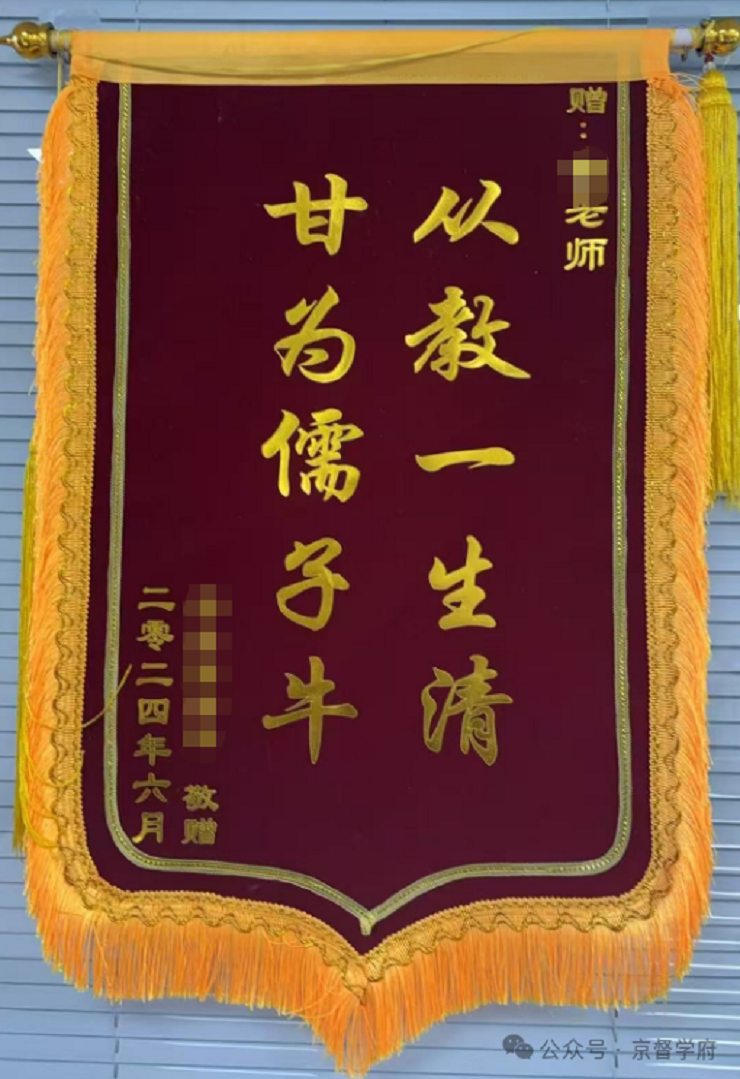 赠：
老师
从教一生清
甘为儒子牛
敬赠
二零二四年六月
公众号 · 京督学府